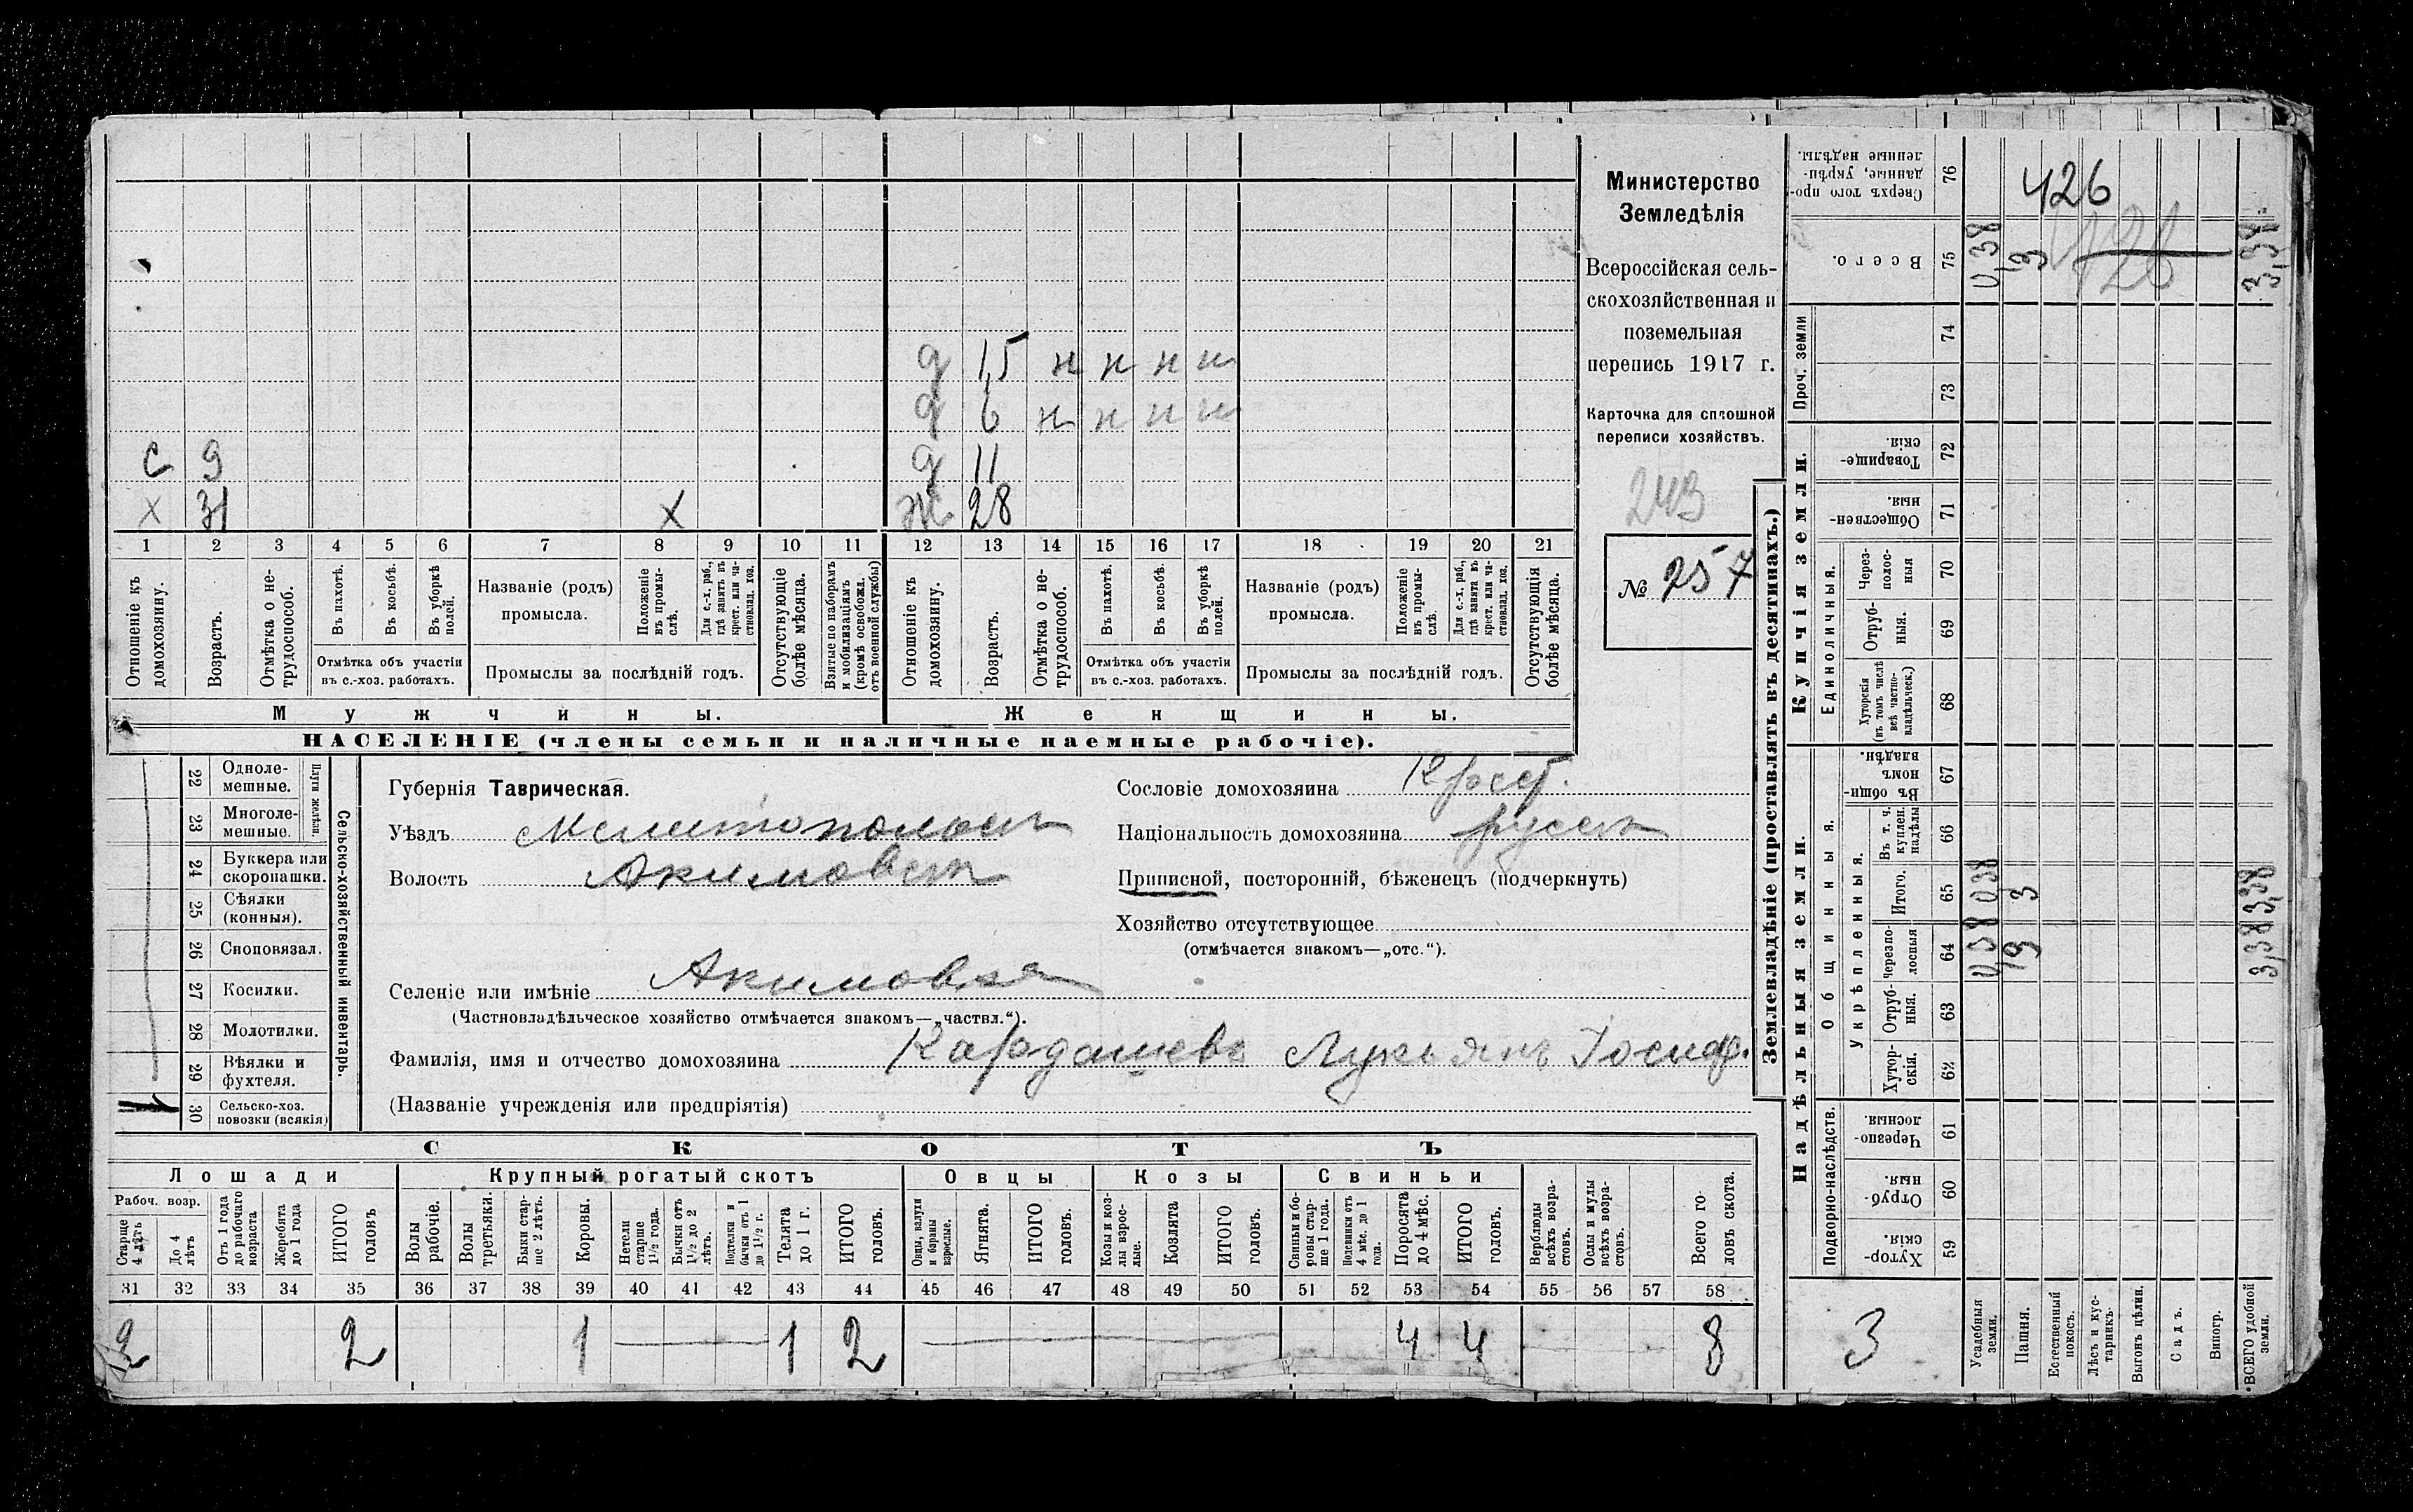 Министерство
Земледѣлія
Всероссійская сель-
скохозяйственная и
поземельная
перепись 1917 г.
Карточка для сплошной
переписи хозяйствъ.
243
№ 257
д 1,5 н н н н
д 6 н н н н
с 9 д 11
х 31 х ж 28
1 2 3 4 5 6 7 8 9 10 11 12 13 14 15 16 17 18 19 20 21
Отношеніе къ домохозяину.
Возрастъ.
Отмѣтка о не-трудоспособ.
Въ пахотѣ.
Въ косьбѣ.
Въ уборкѣ полей.
Отмѣтка объ участіи
въ с.-хоз. работахъ.
Названіе (родъ)
промысла.
Положеніе въ промы-слѣ.
Для с.-х. раб., гдѣ занятъ въ крест. или ча-стновлад. хоз.
Промыслы за послѣдній годъ.
Отсутствующіе болѣе мѣсяца.
Взятые по наборамъ и мобилизаціямъ (кромѣ освобожд. отъ военной службы)
Отношеніе къ домохозяину.
Возрастъ.
Отмѣтка о не-трудоспособ.
Въ пахотѣ.
Въ косьбѣ.
Въ уборкѣ полей.
Отмѣтка объ участіи
въ с.-хоз. работахъ.
Названіе (родъ)
промысла.
Положеніе въ промы-слѣ
Для с.-х. раб., гдѣ занята въ крест. или ча-стновлад. хоз.
Промыслы за послѣдній годъ.
Отсутствующія болѣе мѣсяца.
Мужчины.
Женщины.
НАСЕЛЕНІЕ (члены семьи и наличные наемные рабочіе).
22 Одноле-мешные.
23 Многоле-мешные.
Плуги желѣзн.
24 Буккера или скоропашки.
25 Сѣялки (конныя).
26 Сноповязал.
27 Косилки.
28 Молотилки.
29 Вѣялки и фухтеля.
30 Сельско-хоз. повозки (всякія)
1
Сельско-хозяйственный инвентарь.
Губернія Таврическая.
Уѣздъ Мелитопольск
Волость Акимовск
Селеніе или имѣніе Акимовка
(Частновладѣльческое хозяйство отмѣчается знакомъ—„частвл.“).
Фамилія, имя и отчество домохозяина Кардашевъ Лукьянъ Іосиф.
(Названіе учрежденія или предпріятія)
Сословіе домохозяина Крест.
Національность домохозяина русск
Приписной, посторонній, бѣженецъ (подчеркнуть)
Хозяйство отсутствующее
(отмѣчается знакомъ—„отс.“).
СКОТЪ
Лошади
Крупный рогатый скотъ
Овцы
Козы
Свиньи
Рабоч. возр.
Старше 4 лѣтъ
До 4 лѣтъ
Отъ 1 года до рабочаго возраста
Жеребята до 1 года
ИТОГО головъ
Волы рабочіе.
Волы третьяки.
Быки стар-ше 2 лѣтъ.
Коровы.
Нетели старше 1½ года.
Бычки отъ 1½ до 2 лѣтъ.
Подтелки и бычки отъ 1 до 1½ г.
Телята до 1 г.
ИТОГО головъ.
Овцы, валухи и бараны взрослые.
Ягнята.
ИТОГО головъ.
Козы и коз-лы взрос-лые.
Козлята
ИТОГО головъ.
Свиньи и бо-ровы стар-ше 1 года.
Подсвинки отъ 4 мѣс. до 1 года.
Поросята до 4 мѣс.
ИТОГО головъ.
Верблюды всѣхъ возра-стовъ.
Ослы и мулы всѣхъ возра-стовъ.
Всего го-ловъ скота.
31 32 33 34 35 36 37 38 39 40 41 42 43 44 45 46 47 48 49 50 51 52 53 54 55 56 57 58
2 2 1 1 2 4 4 8
Землевладѣніе (проставлять въ десятинахъ.)
Надѣльныя земли.
Купчія земли.
Проч. земли
Подворно-наслѣдств.
Общинныя.
Укрѣпленныя.
Единоличныя.
Сверхъ того про-данные, укрѣп-ленные надѣлы. 76
426
Всего. 75
0,38 3 126 3,38
74
73
Товарище-скія. 72
Обществен-ныя 71
Через-полос-ныя 70
Отруб-ныя. 69
Хуторскія (въ томъ числѣ всѣ частно-владѣльческ.) 68
Въ общи-номъ владѣн. 67
Въ т. ч. куплен. надѣлы 66
Итого. 65 0,38 3 3,38
Черезпо-лосныя 64 0,38 3 3,38
Отруб-ныя. 63
Хутор-скія. 62
Черезпо-лосныя 61
Отруб-ныя. 60
Хутор-скія. 59
3
Усадебная земли.
Пашня.
Естественный покосъ.
Лѣсъ и кус-тарникъ.
Выгонъ цѣлин.
Садъ.
Виногр.
ВСЕГО удобной земли.